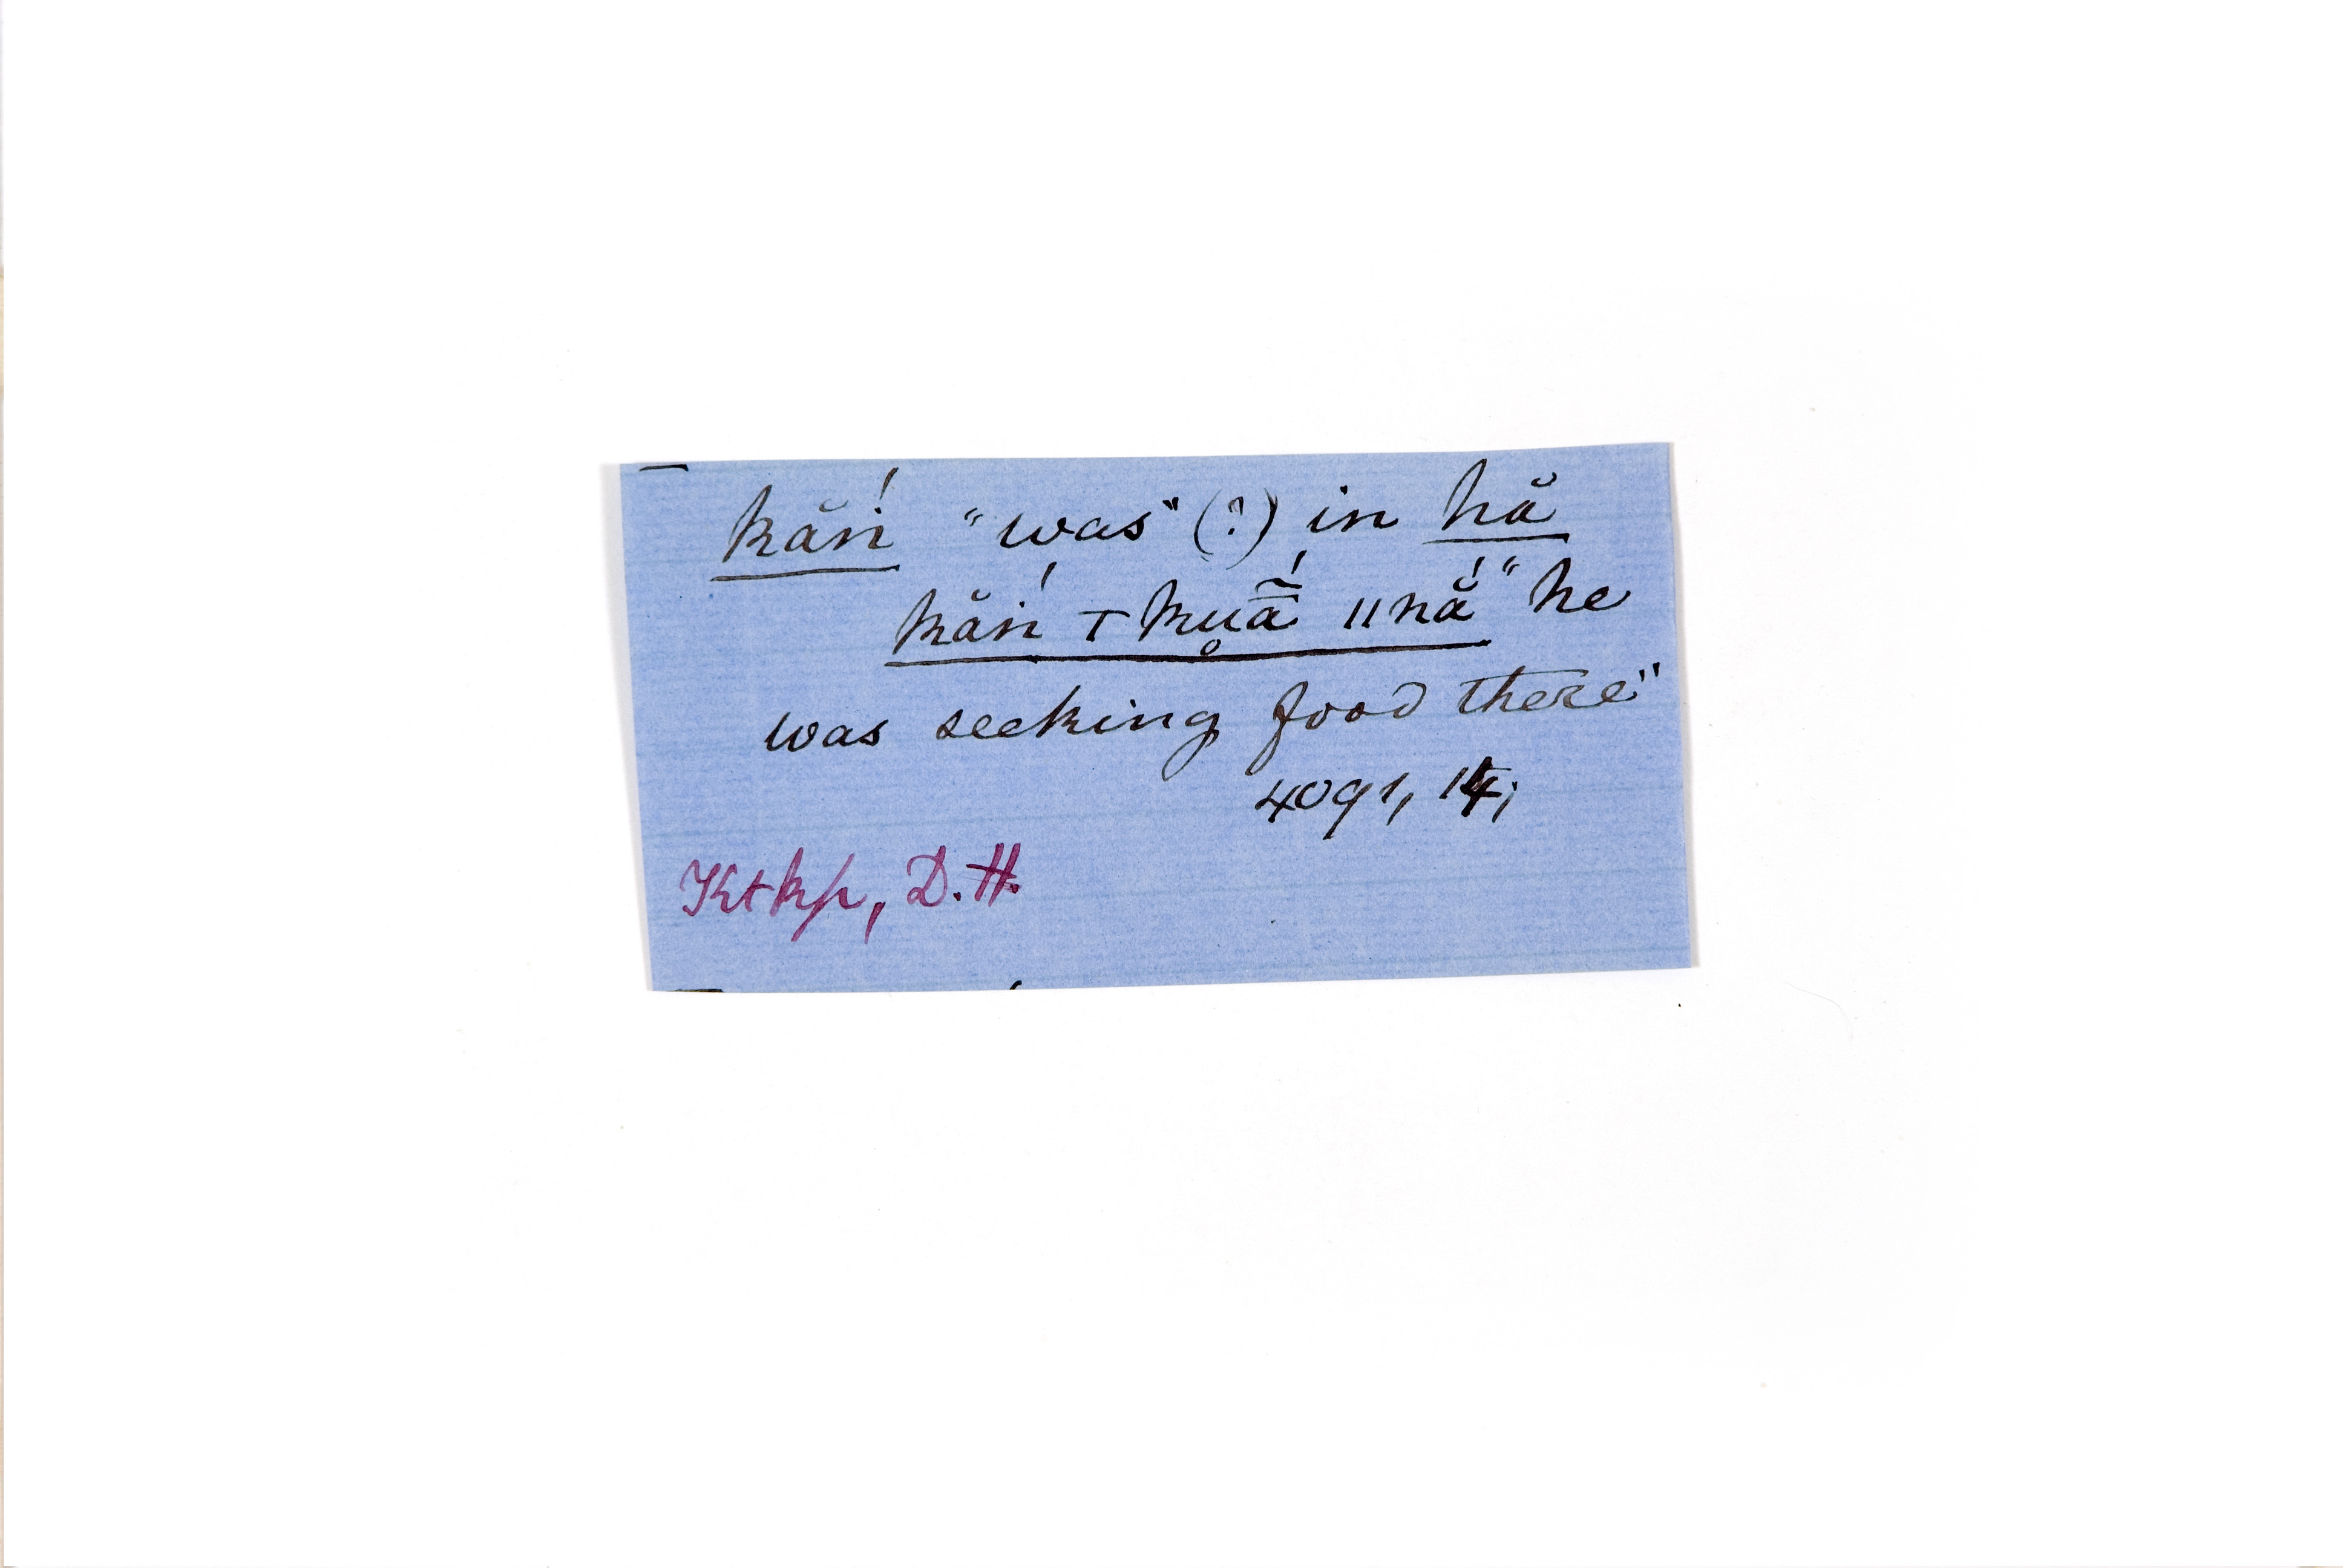 kăṅ́ "was" (?) in hă
kăṅ́ ⊤kụā̰̃́ ǁnắ "he
was seeking food there"
4091, 14;
Ktkp, D.H.